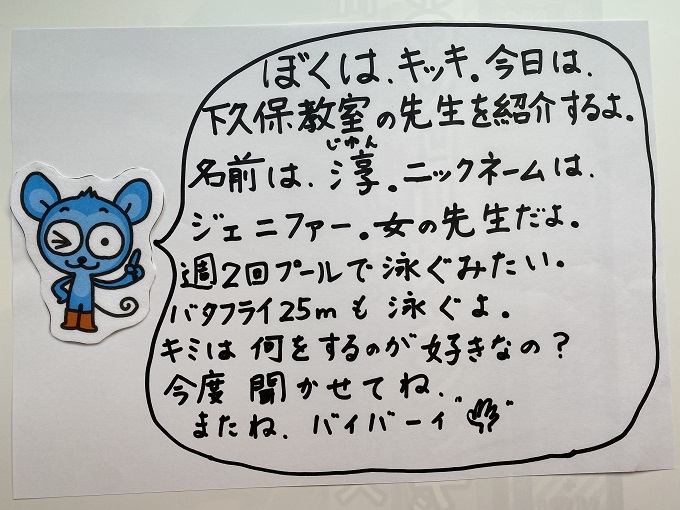 ぼくは、キッキ。今日は、
下久保教室の先生を紹介するよ。
じゅん
名前は、淳。ニックネームは、
ジェニファー。女の先生だよ。
週2回プールで泳ぐみたい。
バタフライ25mも泳ぐよ。
キミは何をするのが好きなの？
今度聞かせてね、
またね、バイバーイ